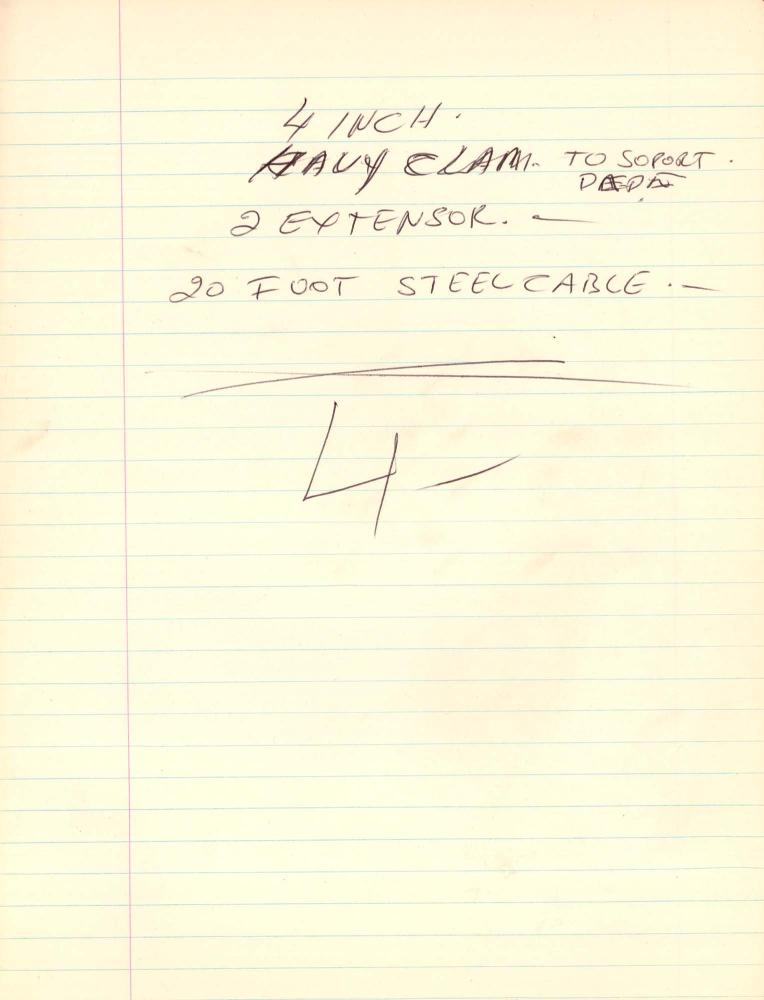 4 INCH.
HAVY CLAM. TO SOPORT.
2 EXTENSOR. —
20 FOOT STEEL CABLE. —
4 —